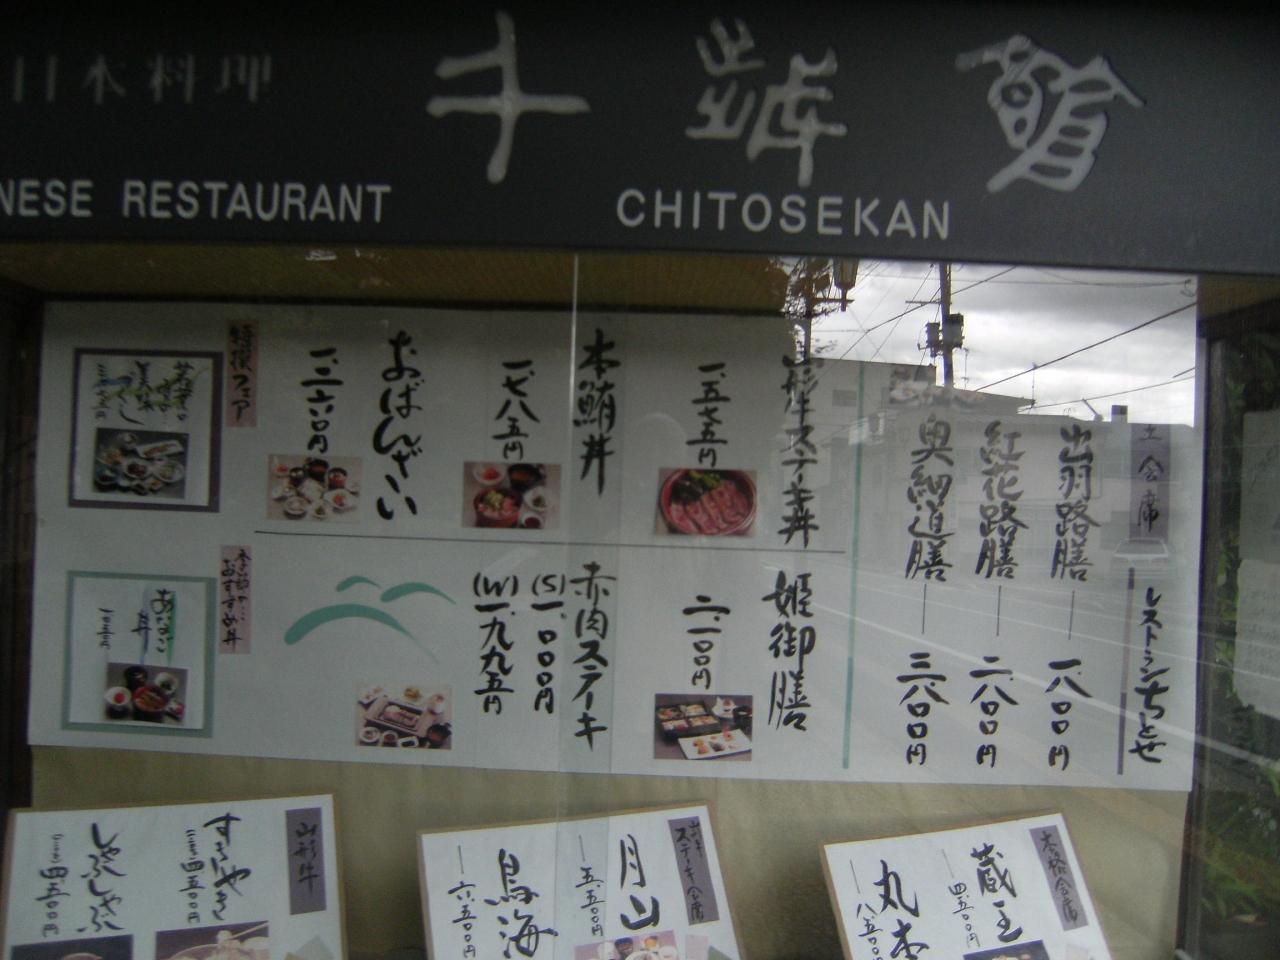 日本料理 千歳館
NESE RESTAURANT CHITOSEKAN
レストランちとせ
出羽路膳 一、八〇〇円
紅花路膳 二、八〇〇円
奥細道膳 三、八〇〇円
山形牛ステーキ丼
一、五七五円
姫御膳
二、一〇〇円
本鮪丼
一、七八五円
赤肉ステーキ
(S)一、〇〇〇円
(W)一、九九五円
おばんざい
一、二六〇円
特撰フェア
季節の…
おすすめ丼
あなご
丼
本格会席
蔵王
四、五〇〇円
丸本
山形牛
ステーキ会席
月山
五、五〇〇円
鳥海
六、五〇円
山形牛
すきやき
四、五〇〇円
しゃぶしゃぶ
四、五〇〇円